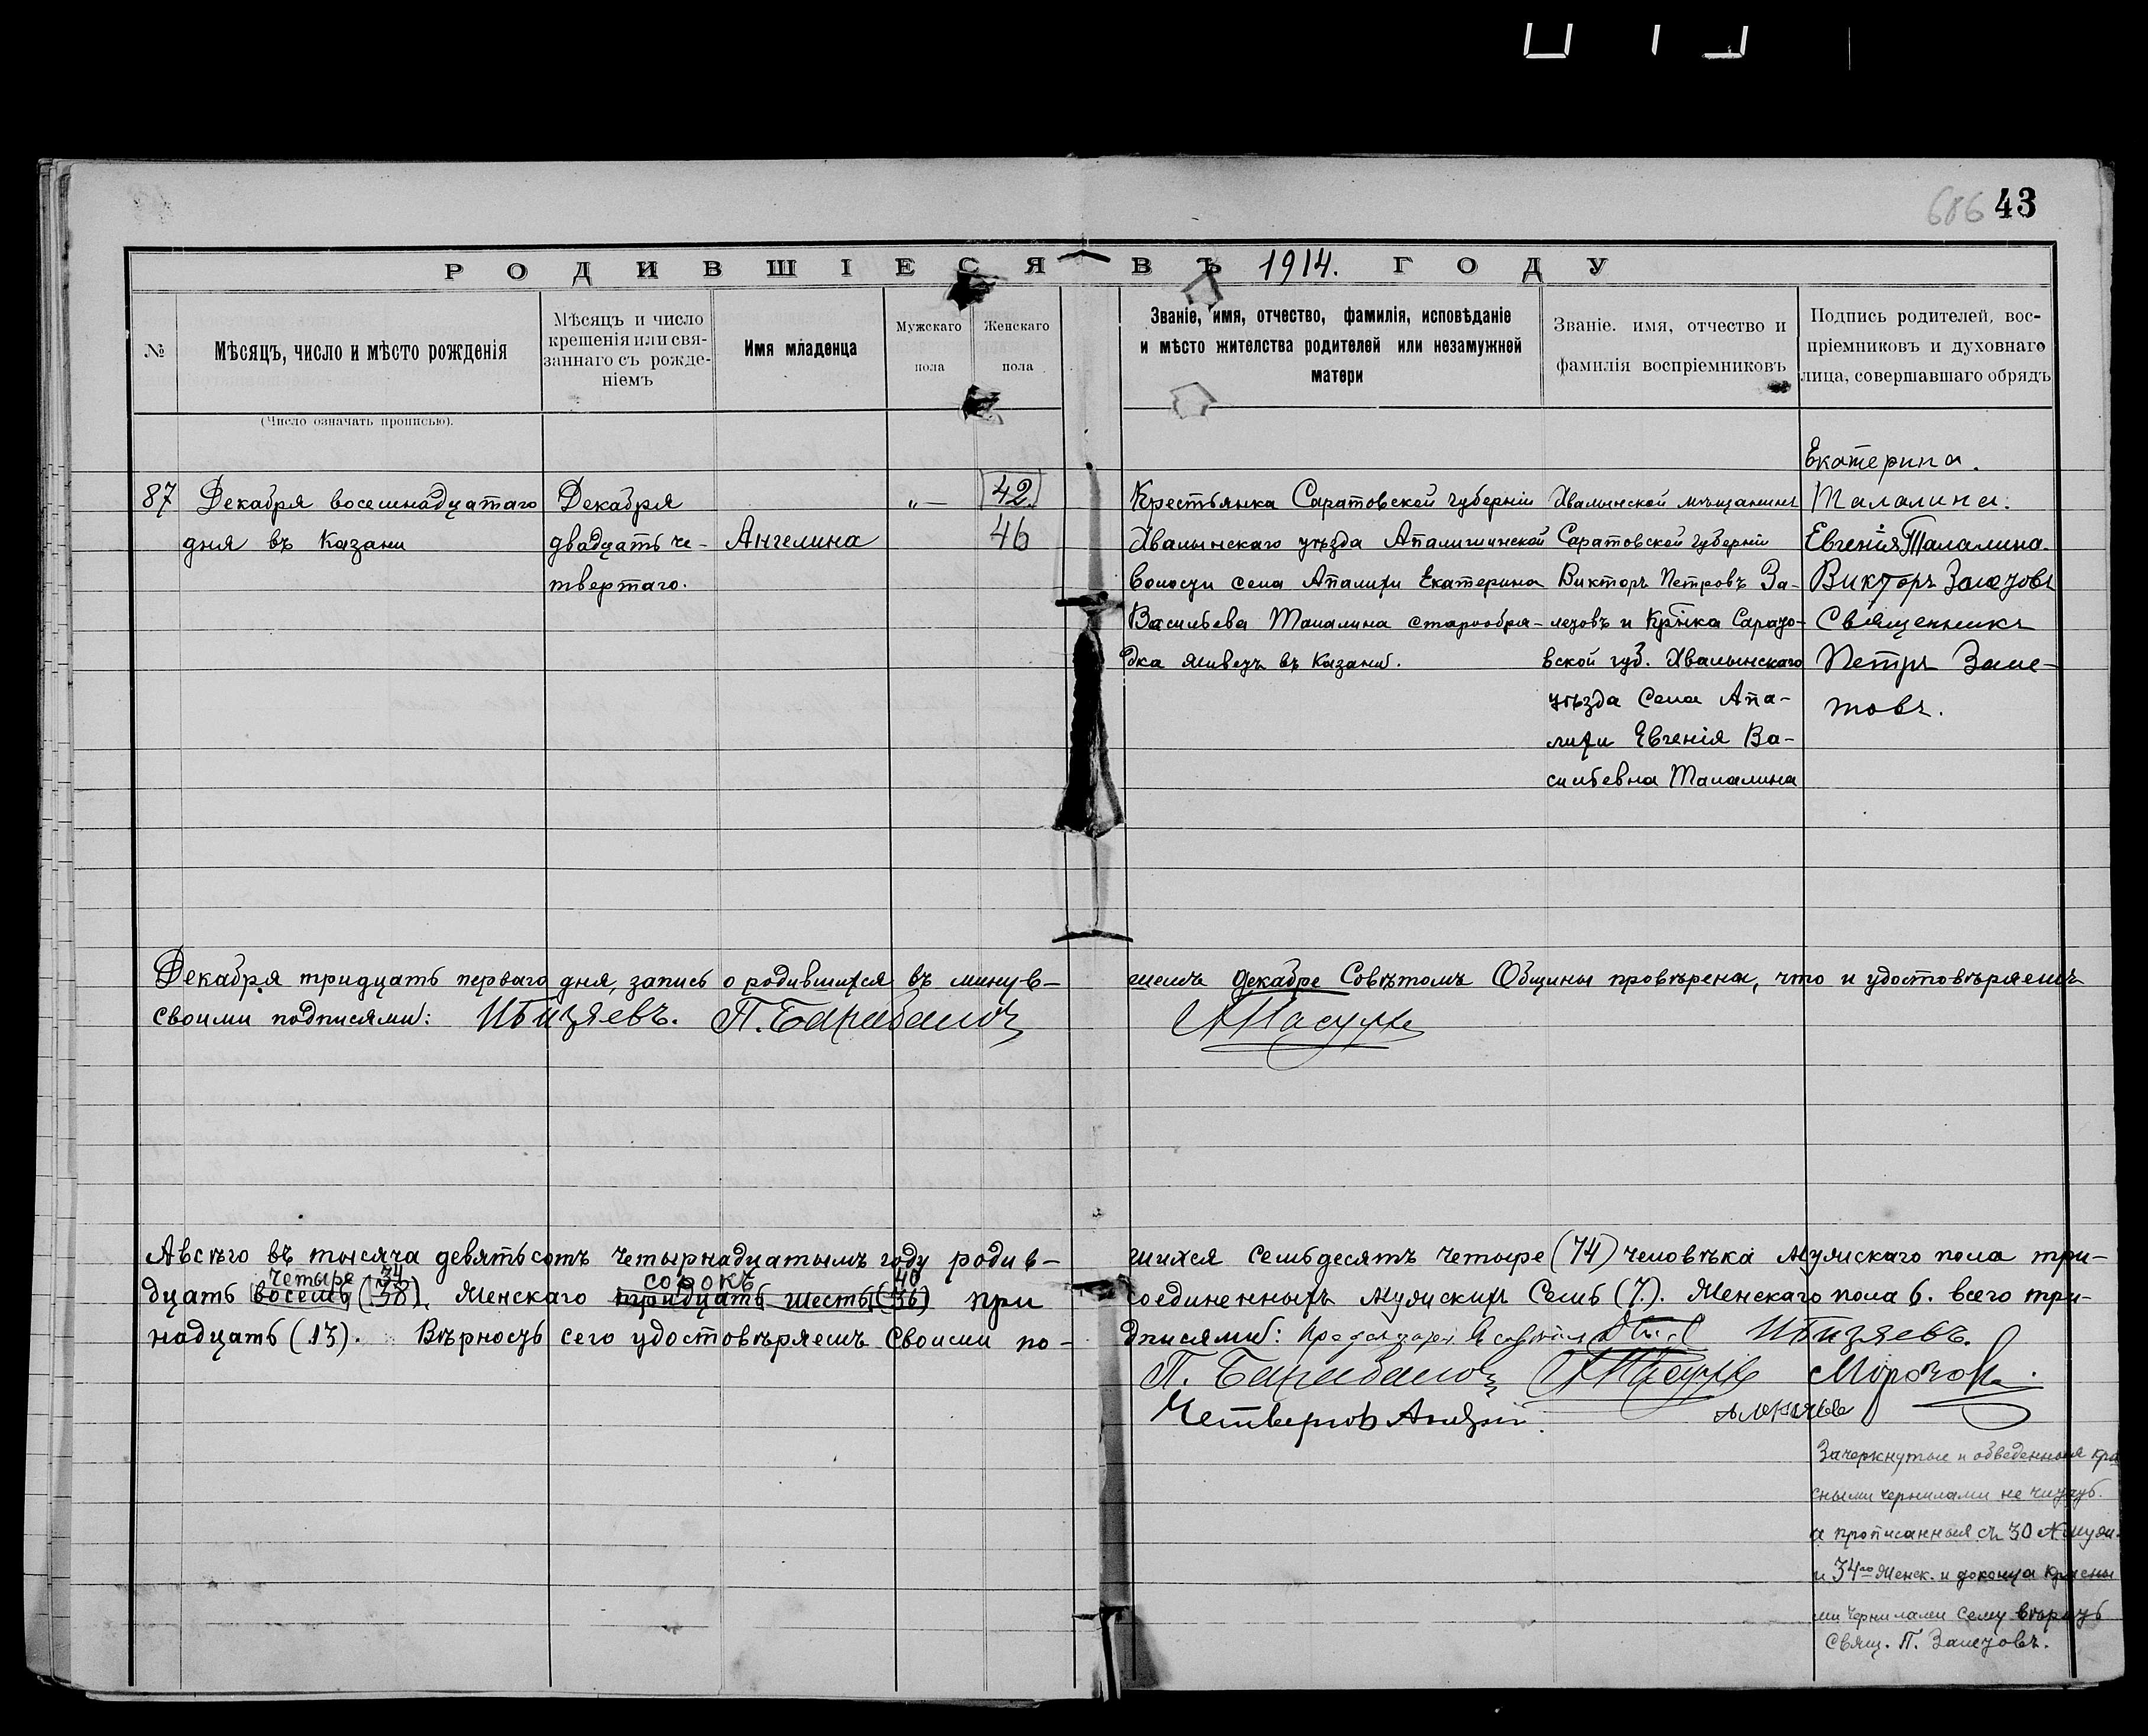 686 43
РОДИВШІЕСЯ ВЪ 1914. ГОДУ
№
Мѣсяцъ, число и мѣсто рожденія
Мѣсяцъ и число
крещенія или свя-
заннаго съ рожде-
ніемъ
Имя младенца
Мужскаго
пола
Женскаго
пола
Званіе, имя, отчество, фамилія, исповѣданіе
и мѣсто жителства родителей или незамужней
матери
Званіе. имя, отчество и
фамилія воспріемниковъ
Подпись родителей, вос-
пріемниковъ и духовнаго
лица, совершавшаго обрядъ
(Число означать прописью).
87
Декабря восемнадцатаго
дня въ Казани
Декабря
двадцать че-
твертаго.
Ангелина
„—
42
46
Крестьянка Саратовской губерніи
Хвалынскаго уѣзда Апалишинской
волости села Апалихи Екатерина
Васильева Талалина старообря-
дка живетъ въ Казани.
Хвалынской мѣщанинъ
Саратовской губерніи
Викторъ Петровъ За-
летовъ и Кр-нка Сарато-
вской губ. Хвалынскаго
уѣзда Села Апа-
лихи Евгенія Ва-
сильевна Талалина
Екатерина.
Талалина.
Евгенія Талалина.
Викторъ Залетовъ
Священникъ
Петръ Зале-
товъ.
Декабря тридцать перваго дня, запись о родившихся въ минув-
шемъ Декабре Совѣтомъ Общины провѣрена, что и удостовѣряемъ
своими подписями:
Авсѣго въ тысяча девятьсотъ четырнадцатымъ году родив-
шихся семьдесятъ четыре (74) человѣка мужскаго пола три-
четыре 34 сорокъ 40
дцать восемь (38), Женскаго тридцать шесть (36) при
соединенныхъ мужскихъ Семь (7.). Женскаго пола 6. всего три-
надцать (13). Вѣрность сего удостовѣряемъ Своими по-
дписями:
Зачеркнутые и обведенныя кра
сными чернилами не читать.
а прописанныя съ 30 № муж.
и 34го Женск. и доконца красны
ми чернилами сему вѣрить
Свящ. П. Залетовъ.